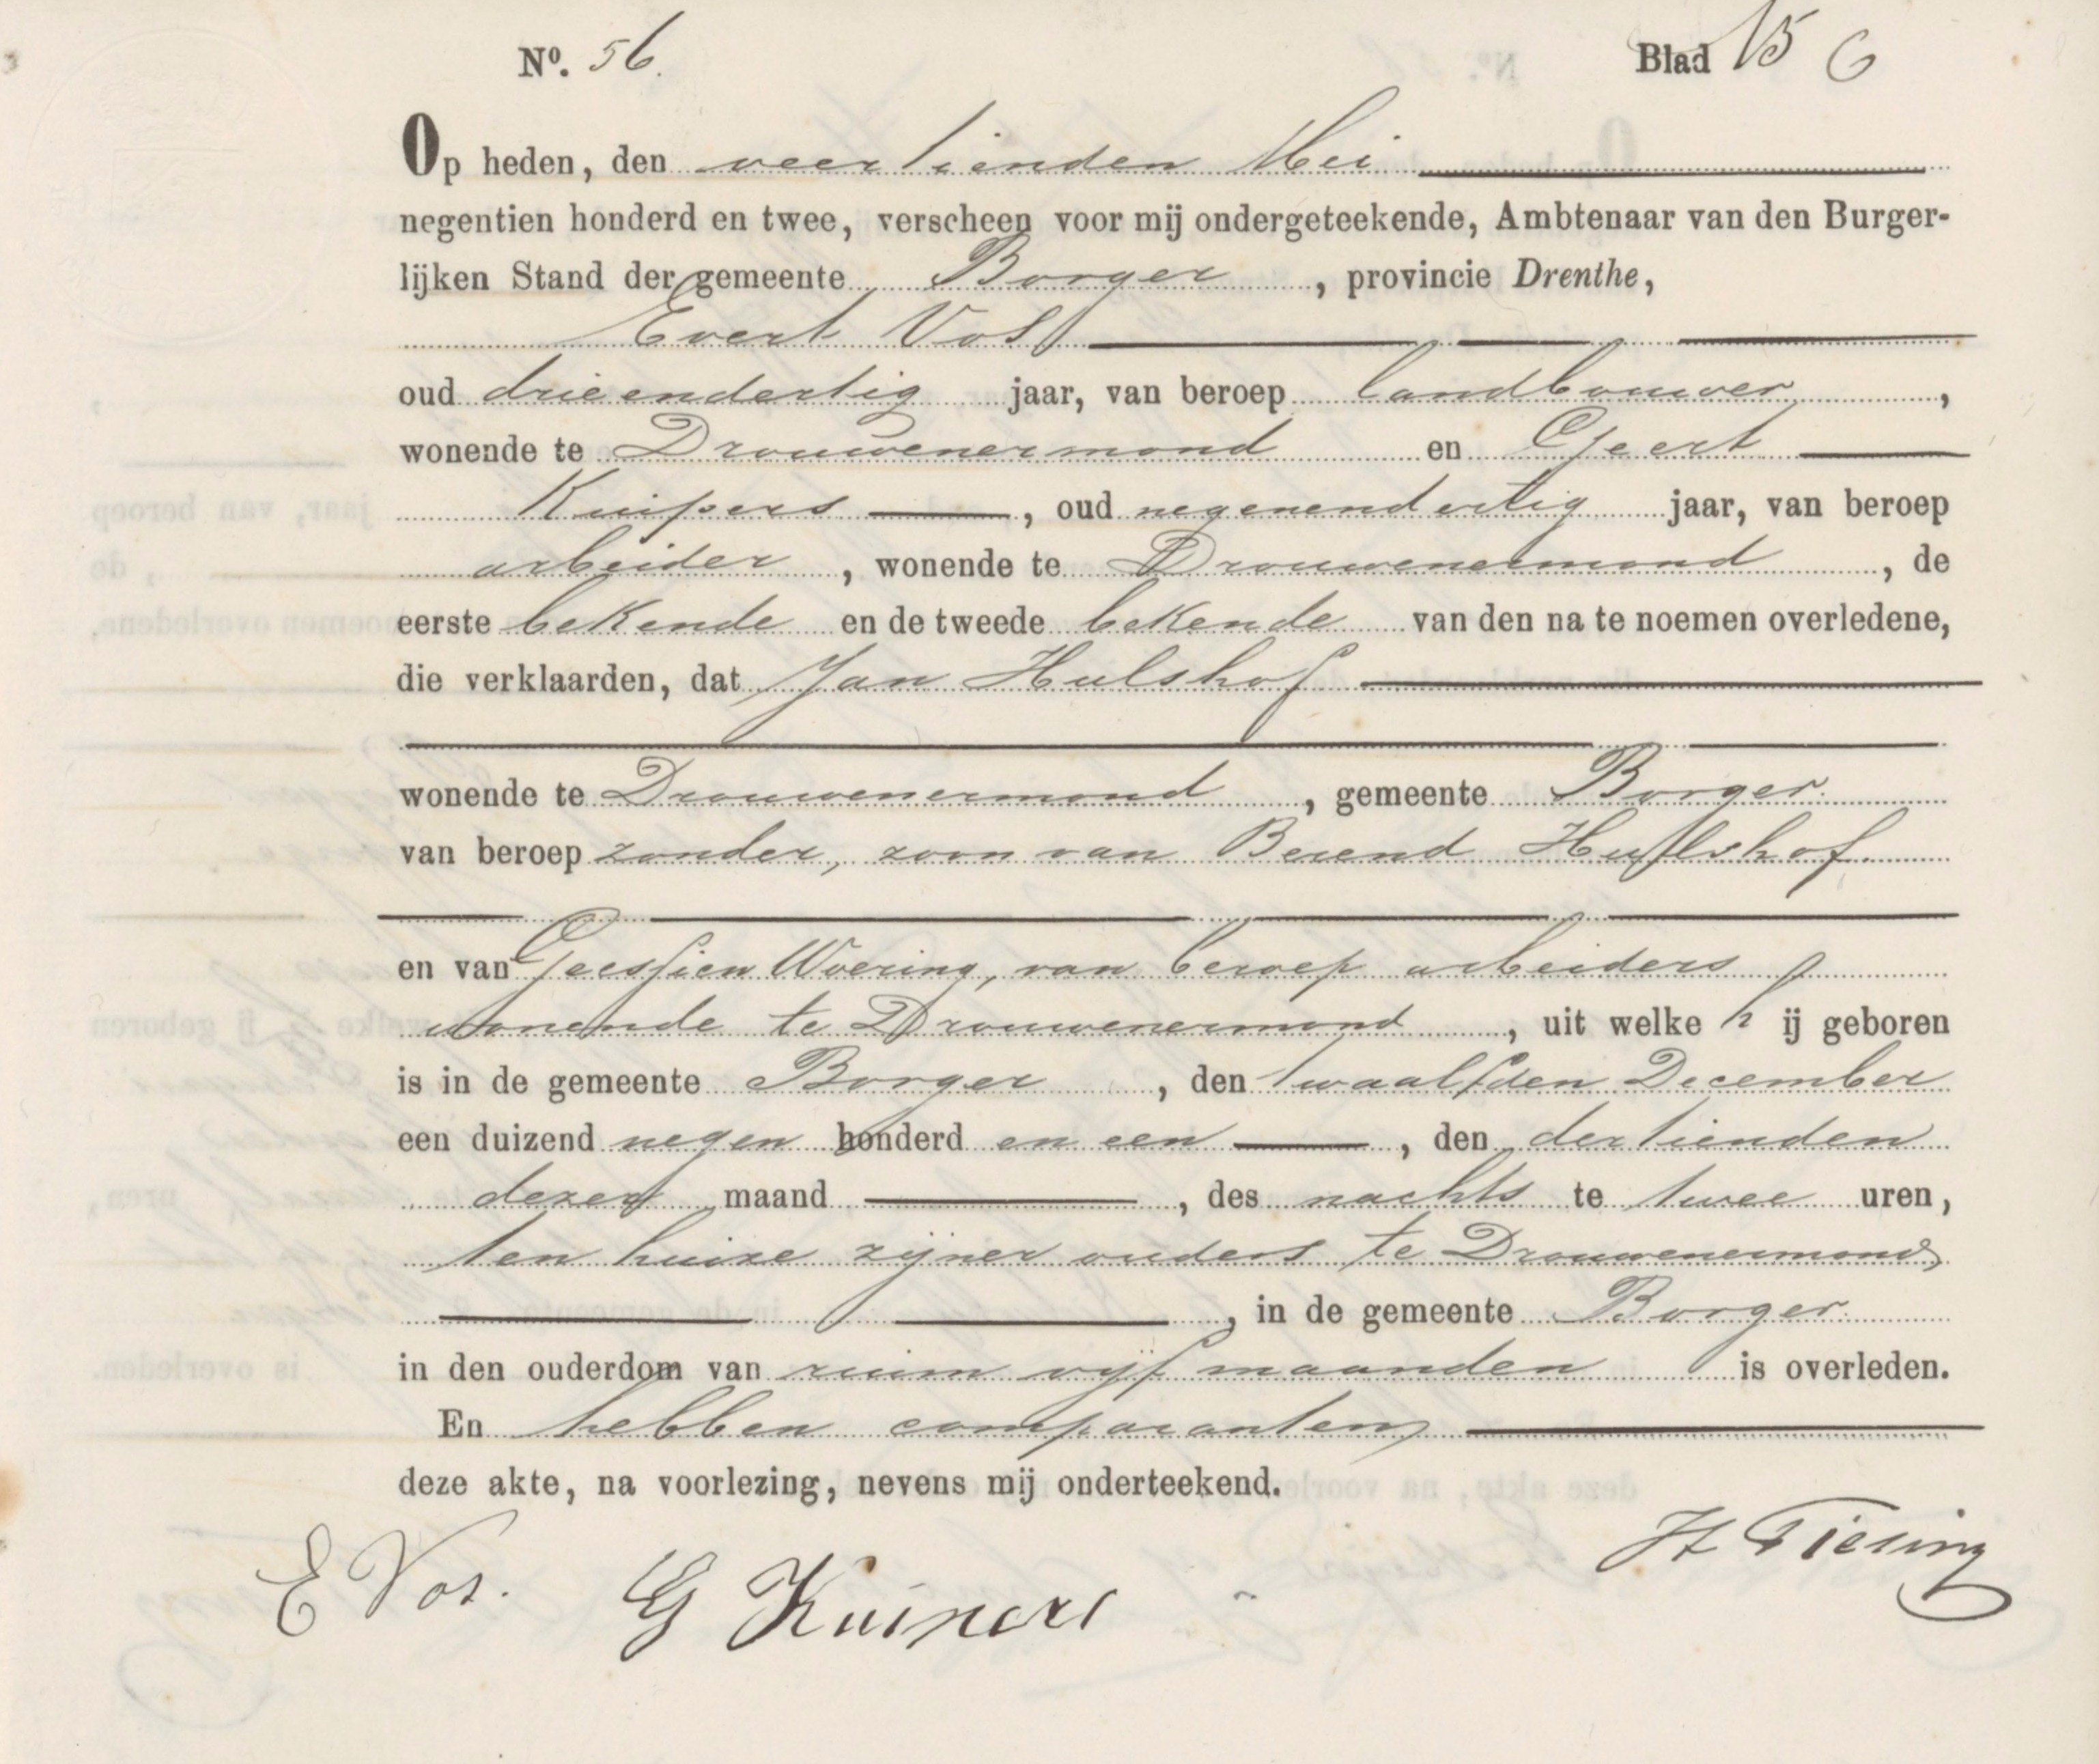 Nº. 56. Blad 15 6
Op heden, den veertienden Mei
negentien honderd en twee, verscheen voor mij ondergeteekende, Ambtenaar van den Burger-
lijken Stand der gemeente Borger, provincie Drenthe,
Evert Vos
oud drieendertig jaar, van beroep landbouwer,
wonende te Drouwenermond en Geert
Kuipers, oud negenendertig jaar, van beroep
arbeider, wonende te Drouwenermond, de
eerste bekende en de tweede bekende van den na te noemen overledene,
die verklaarden, dat Jan Hulshof
wonende te Drouwenermond, gemeente Borger
van beroep zonder, zoon van Berend Hulshof
en van Geessien Woering, van beroep arbeiders
wonende te Drouwenermond, uit welke hij geboren
is in de gemeente Borger, den twaalfden December
een duizend negen honderd en een, den dertienden
dezer maand, des nachts te twee uren,
ten huize zijner ouders te Drouwenermond,
, in de gemeente Borger
in den ouderdom van ruim vijf maanden is overleden.
En hebben comparanten
deze akte, na voorlezing, nevens mij onderteekend.
E Vos. G Kuipers H Tiesing